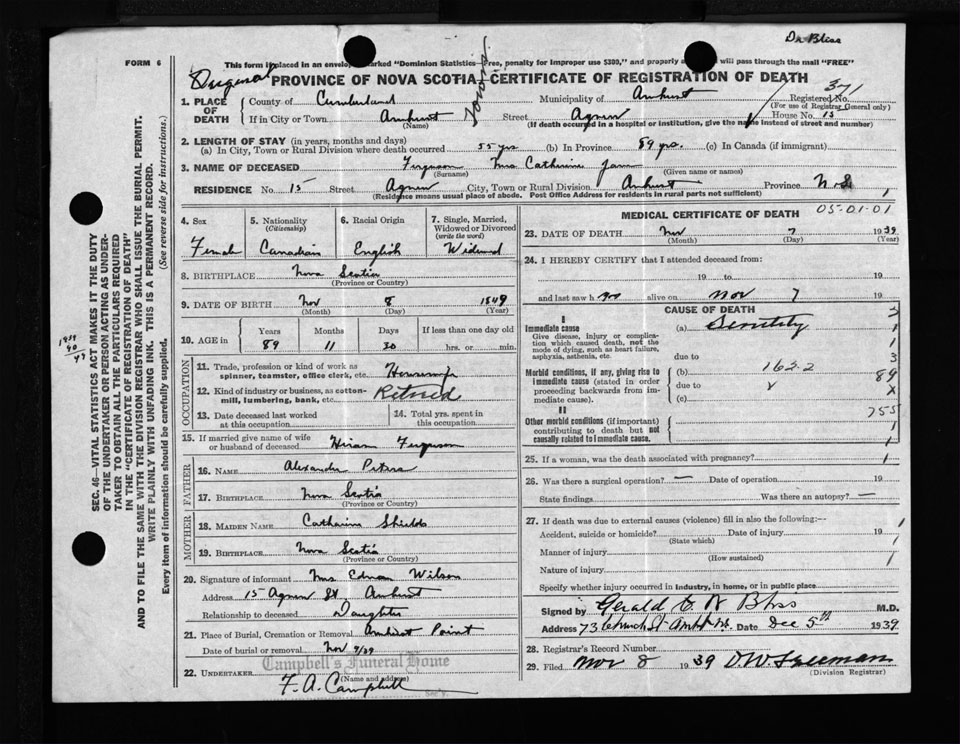 Dr Bliss
FORM 6
This form if placed in an envelope marked "Dominion Statistics—Free, penalty for improper use $300," and properly a will pass through the mail "FREE"
PROVINCE OF NOVA SCOTIA—CERTIFICATE OF REGISTRATION OF DEATH
371
1. PLACE OF DEATH County of Cumberland Municipality of Amherst Registered No.
(For use of Registrar General only)
If in City or Town Amherst Street Agnew House No. 15
(Name) (If death occurred in a hospital or institution, give the name instead of street and number)
2. LENGTH OF STAY (in years, months and days)
(a) In City, Town or Rural Division where death occurred 55 yrs (b) In Province 89 yrs. (c) In Canada (if immigrant)
3. NAME OF DECEASED Ferguson Mrs Catherine Jane
(Surname) (Given name or names)
RESIDENCE No. 15 Street Agnew City, Town or Rural Division Amherst Province N.S. 1
(Residence means usual place of abode. Post Office Address for residents in rural parts not sufficient)
4. Sex 5. Nationality 6. Racial Origin 7. Single, Married, Widowed or Divorced
(Citizenship) (write the word)
Female Canadian English Widowed
8. BIRTHPLACE Nova Scotia
(Province or Country)
9. DATE OF BIRTH Nov 8 1849
(Month) (Day) (Year)
10. AGE in Years Months Days If less than one day old
89 11 30 hrs. or min.
OCCUPATION
11. Trade, profession or kind of work as spinner, teamster, office clerk, etc.
12. Kind of industry or business, as cotton-mill, lumbering, bank, etc. Retired
13. Date deceased last worked at this occupation
14. Total yrs. spent in this occupation
15. If married give name of wife or husband of deceased Hiram Ferguson
FATHER
16. NAME Alexander Peters
17. BIRTHPLACE Nova Scotia
(Province or Country)
MOTHER
18. MAIDEN NAME Catharine Shields
19. BIRTHPLACE Nova Scotia
(Province or Country)
20. Signature of informant Mrs Wilson
Address 15 Agnew St. Amherst
Relationship to deceased Daughter
21. Place of Burial, Cremation or Removal Amherst Point
Date of burial or removal Nov 9/39
Campbell's Funeral Home
22. UNDERTAKER (Name and address)
F. A. Campbell
MEDICAL CERTIFICATE OF DEATH
05-01-01
23. DATE OF DEATH Nov 7 1939
(Month) (Day) (Year)
24. I HEREBY CERTIFY that I attended deceased from:
19 to 19
and last saw her alive on Nov 7 19
CAUSE OF DEATH
I
Immediate cause (a) Senility
Give disease, injury or complication which caused death, not the mode of dying, such as heart failure, asphyxia, asthenia, etc.
due to
Morbid conditions, if any, giving rise to immediate cause (stated in order proceeding backwards from immediate cause).
(b) 162-2
due to
(c)
II
Other morbid conditions (if important) contributing to death but not causally related to immediate cause.
3
1
1
3
89
X
755
1
1
25. If a woman, was the death associated with pregnancy? 1
26. Was there a surgical operation? — Date of operation 19
State findings Was there an autopsy? —
27. If death was due to external causes (violence) fill in also the following:—
Accident, suicide or homicide? Date of injury 19 1
(State which)
Manner of injury 1
(How sustained)
Nature of injury
Specify whether injury occurred in industry, in home, or in public place
Signed by Gerald C W Bliss M.D.
Address 73 Church St Amherst N.S. Date Dec 5th 1939
28. Registrar's Record Number
29. Filed Nov 8 1939 D.W. Freeman
(Division Registrar)
SEC. 46—VITAL STATISTICS ACT MAKES IT THE DUTY
OF THE UNDERTAKER OR PERSON ACTING AS UNDER-
TAKER TO OBTAIN ALL THE PARTICULARS REQUIRED
IN THE "CERTIFICATE OF REGISTRATION OF DEATH"
AND TO FILE THE SAME WITH THE DIVISION REGISTRAR WHO SHALL ISSUE THE BURIAL PERMIT.
WRITE PLAINLY WITH UNFADING INK. THIS IS A PERMANENT RECORD.
Every item of information should be carefully supplied. (See reverse side for instructions.)